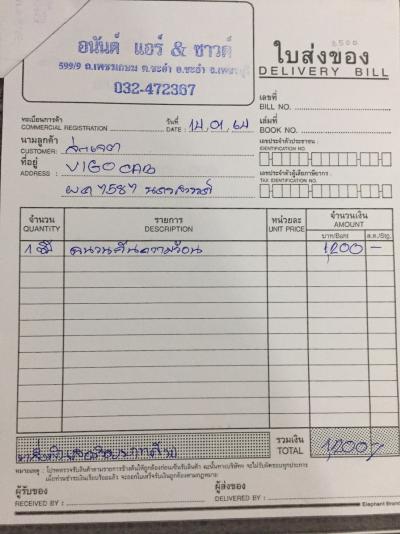 อนันต์ แอร์ & ซาวด์
599/9 ถ.เพชรเกษม ต.ชะอำ อ.ชะอำ จ.เพชรบุรี
032-472367
ใบส่งของ
DELIVERY BILL
เลขที่
BILL NO.
ทะเบียนการค้า
COMMERCIAL REGISTRATION
วันที่
DATE : 14,01,64
เล่มที่
BOOK NO.
นามลูกค้า
CUSTOMER:
เลขประจำตัวประชาชน :
IDENTIFICATION NO.
ที่อยู่
ADDRESS : VIGO CAB
เลขประจำตัวผู้เสียภาษีอากร :
TAX IDENTIFICATION NO.
7587 นครสวรรค์
จำนวน
QUANTITY
รายการ
DESCRIPTION
หน่วยละ
UNIT PRICE
จำนวนเงิน
AMOUNT
บาท/Baht ส.ต./Stg.
1 ฉนวนกันความร้อน 1,200 -
รวมเงิน
TOTAL 1,200
หมายเหตุ : โปรดตรวจรับสินค้าตามรายการข้างต้นให้ถูกต้องก่อนเซ็นรับสินค้า
ผู้รับของ
RECEIVED BY :
ผู้ส่งของ
DELIVERED BY :
Elephant Brand